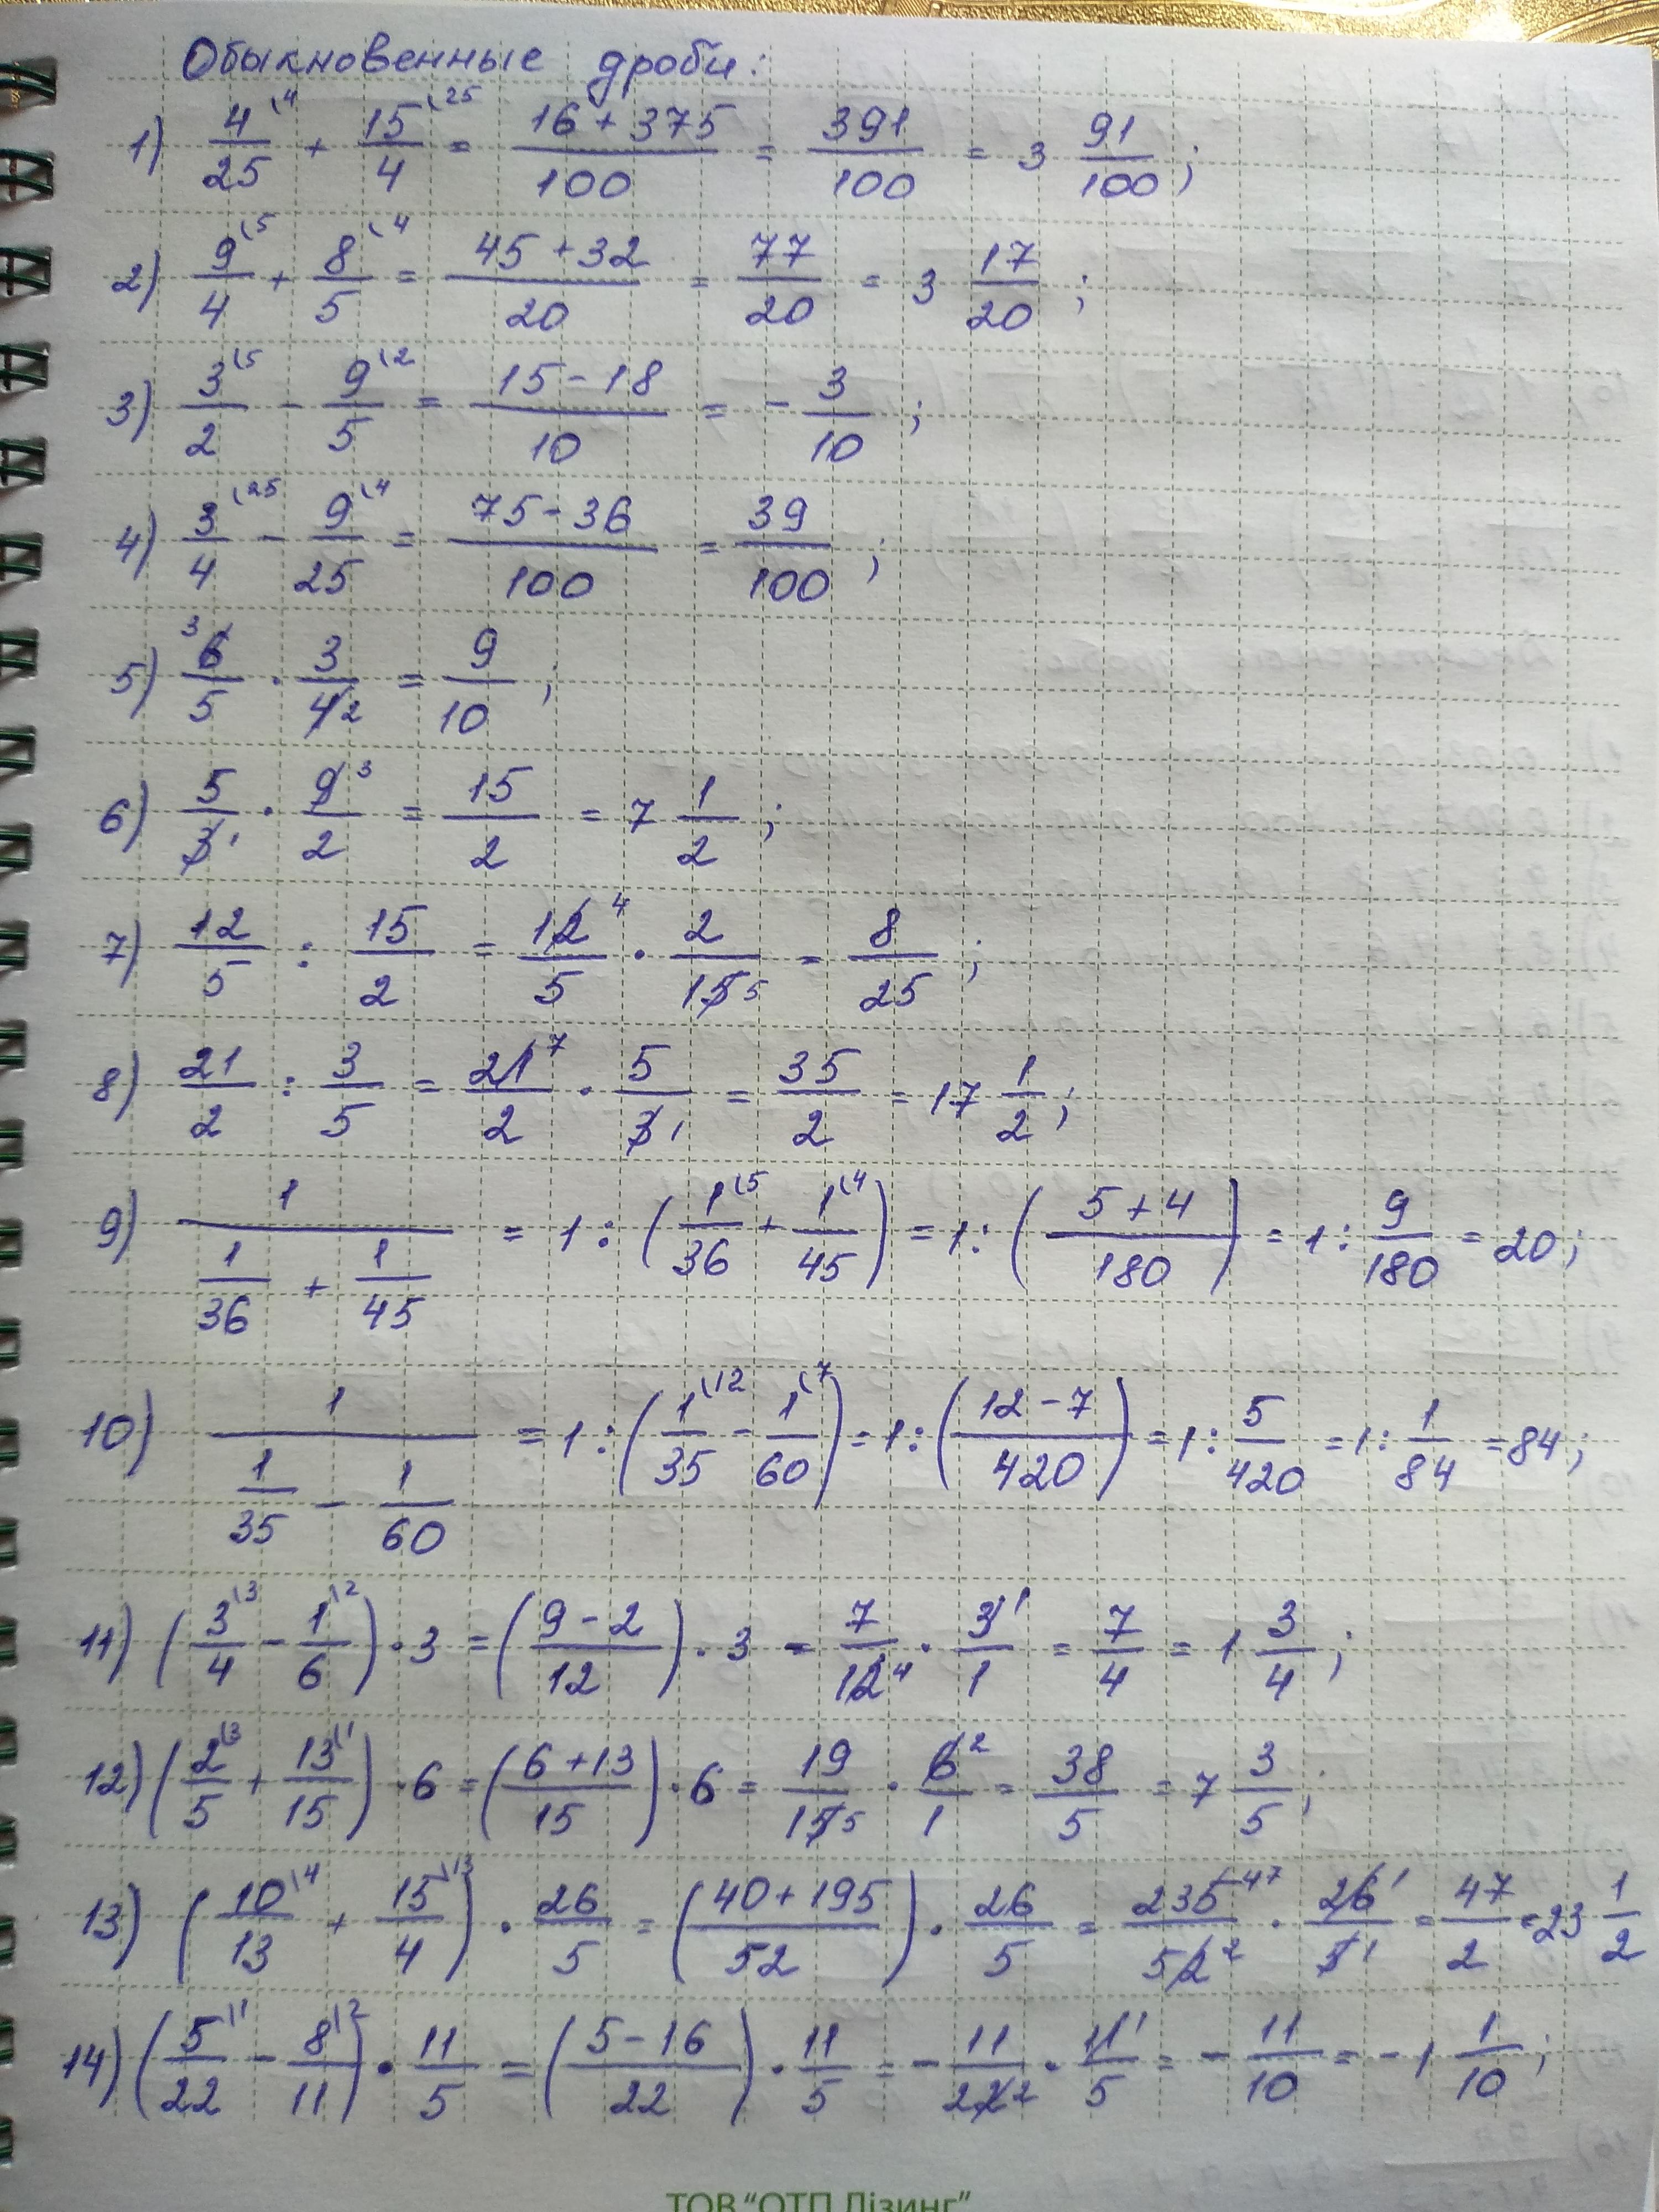 Обыкновенные дроби:
1) 4/25 \4 + 15/4 \25 = (16 + 375)/100 = 391/100 = 3 91/100;
2) 9/4 \5 + 8/5 \4 = (45 + 32)/20 = 77/20 = 3 17/20;
3) 3/2 \5 - 9/5 \2 = (15 - 18)/10 = - 3/10;
4) 3/4 \25 - 9/25 \4 = (75 - 36)/100 = 39/100;
5) 6/5 3 · 3/4 2 = 9/10;
6) 5/3 1 · 9/2 3 = 15/2 = 7 1/2;
7) 12/5 : 15/2 = 12/5 4 · 2/15 5 = 8/25;
8) 21/2 : 3/5 = 21/2 7 · 5/3 1 = 35/2 = 17 1/2;
9) 1/(1/36 + 1/45) = 1 : (1/36 \5 + 1/45 \4) = 1 : ((5 + 4)/180) = 1 : 9/180 = 20;
10) 1/(1/35 - 1/60) = 1 : (1/35 \12 - 1/60 \7) = 1 : ((12 - 7)/420) = 1 : 5/420 = 1 : 1/84 = 84;
11) (3/4 \3 - 1/6 \2) · 3 = ((9 - 2)/12) · 3 = 7/12 4 · 3/1 1 = 7/4 = 1 3/4;
12) (2/5 \3 + 13/15 \1) · 6 = ((6 + 13)/15) · 6 = 19/15 5 · 6/1 2 = 38/5 = 7 3/5;
13) (10/13 \4 + 15/4 \13) · 26/5 = ((40 + 195)/52) · 26/5 = 235/52 47 2 · 26/5 1 1 = 47/2 = 23 1/2
14) (5/22 \1 - 8/11 \2) · 11/5 = ((5 - 16)/22) · 11/5 = - 11/22 2 · 11/5 1 = - 11/10 = - 1 1/10;
ТОВ "ОТП Лізинг"